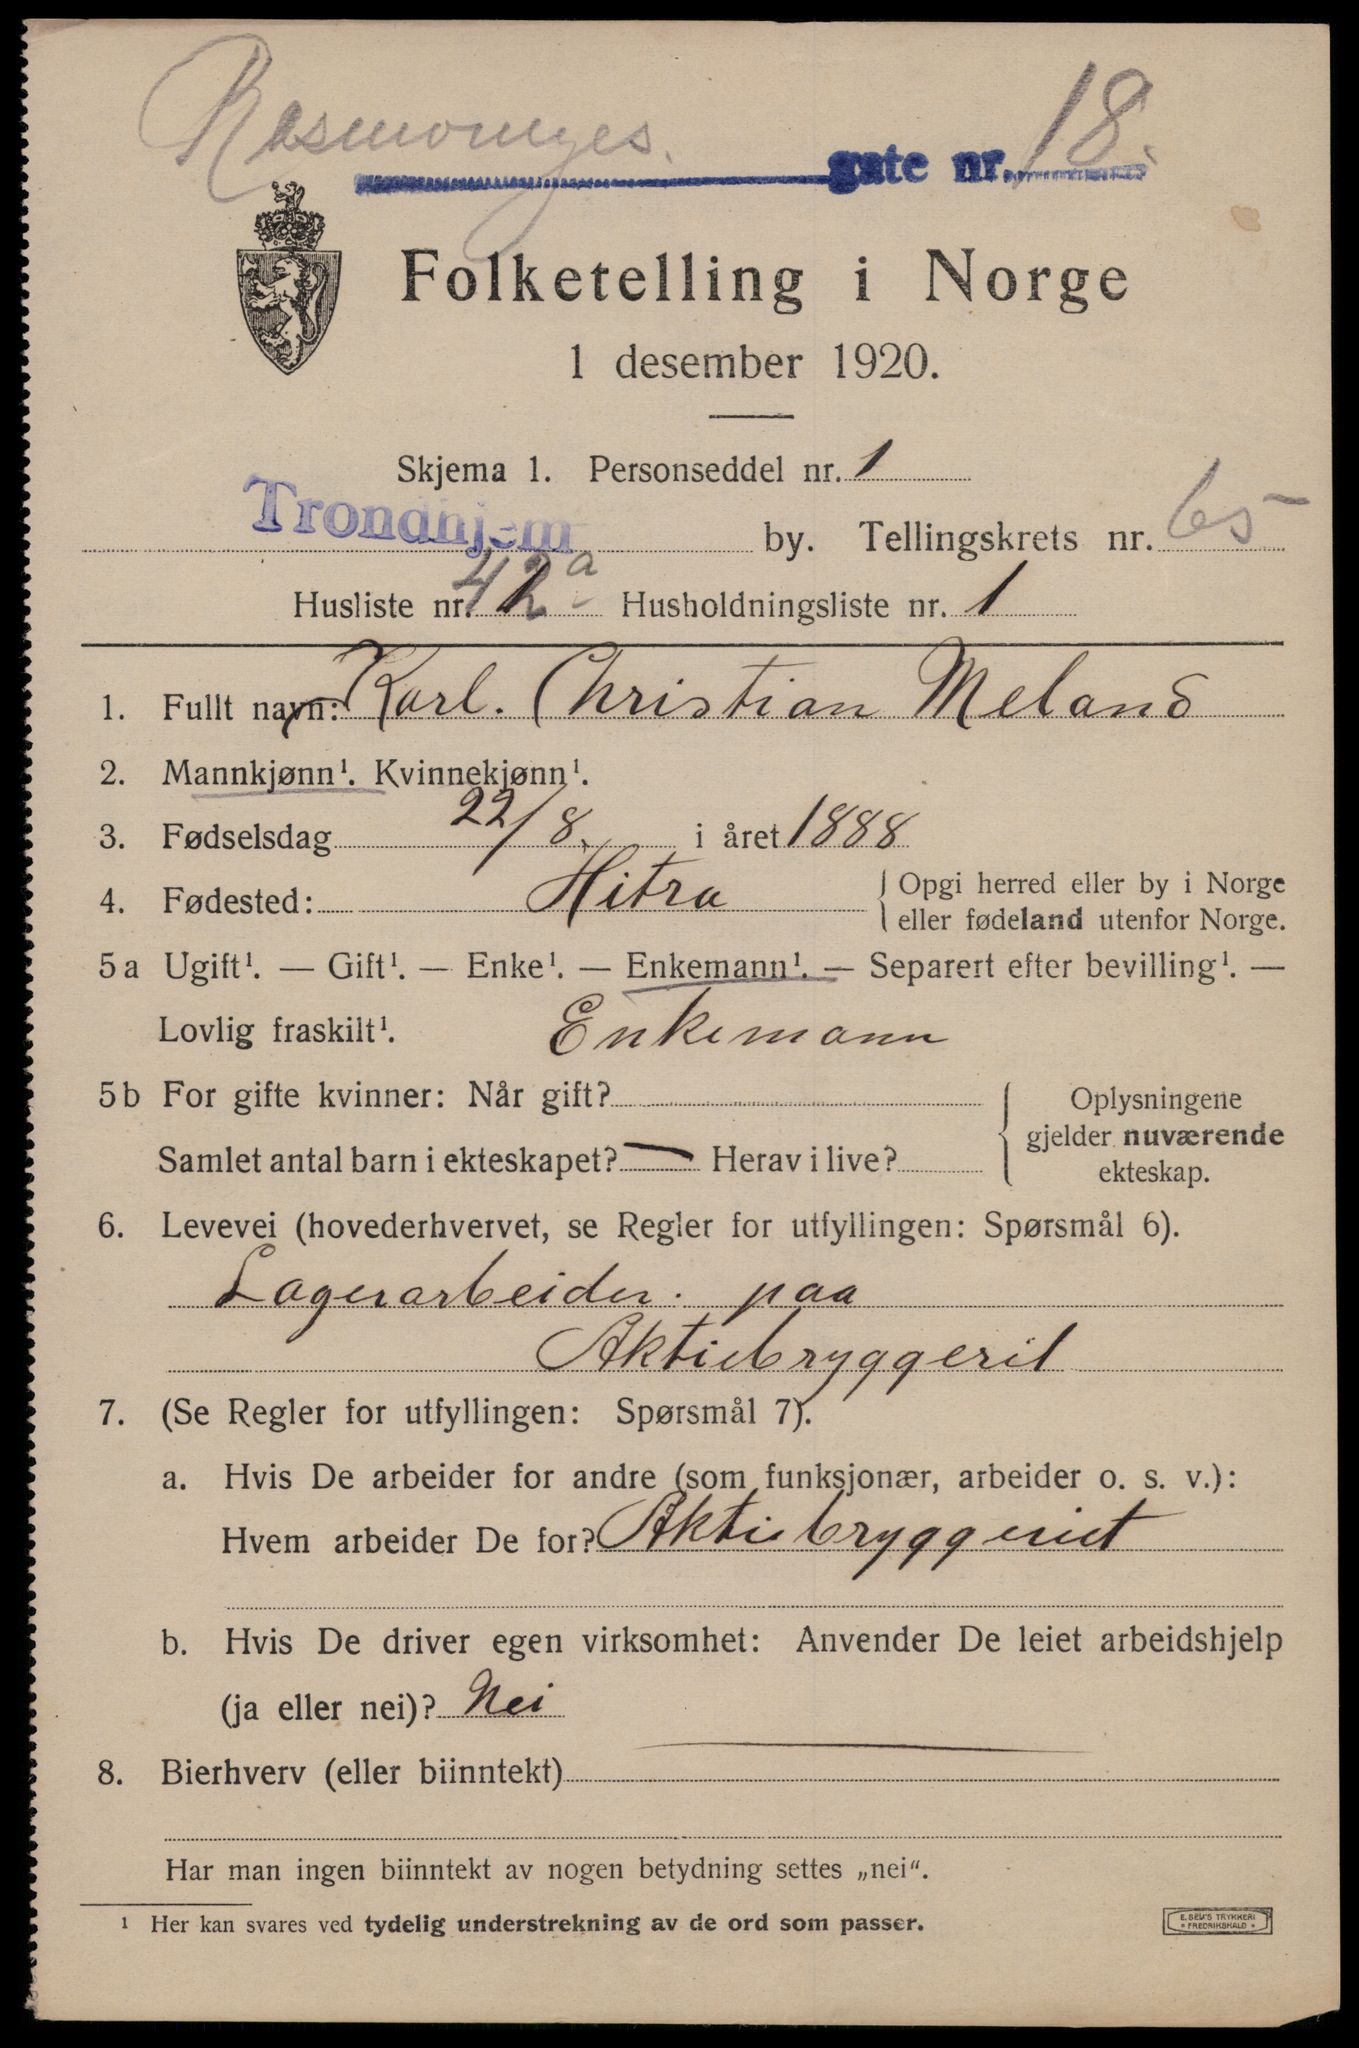 gate nr. 18.
Folketelling i Norge
1 desember 1920.
Skjema 1. Personseddel nr. 1
Trondhjem by. Tellingskrets nr. 65
Husliste nr. 42a Husholdningsliste nr. 1
1. Fullt navn: Karl. Christian Meland
2. Mannkjønn¹. Kvinnekjønn¹.
3. Fødselsdag 22/8. i året 1888
4. Fødested: Hitra { Opgi herred eller by i Norge
eller fødeland utenfor Norge.
5a Ugift¹. — Gift¹. — Enke¹. — Enkemann¹. — Separert efter bevilling¹. —
Lovlig fraskilt¹. Enkemann
5b For gifte kvinner: Når gift? { Oplysningene
gjelder nuværende
Samlet antal barn i ekteskapet? — Herav i live? ekteskap.
6. Levevei (hovederhvervet, se Regler for utfyllingen: Spørsmål 6).
Lagerarbeider. paa
Aktiebryggeriet
7. (Se Regler for utfyllingen: Spørsmål 7).
a. Hvis De arbeider for andre (som funksjonær, arbeider o. s. v.):
Hvem arbeider De for? Aktiebryggeriet
b. Hvis De driver egen virksomhet: Anvender De leiet arbeidshjelp
(ja eller nei)? Nei
8. Bierhverv (eller biinntekt)
Har man ingen biinntekt av nogen betydning settes „nei".
¹ Her kan svares ved tydelig understrekning av de ord som passer.
E. SEM'S TRYKKERI
* FREDRIKSHALD *